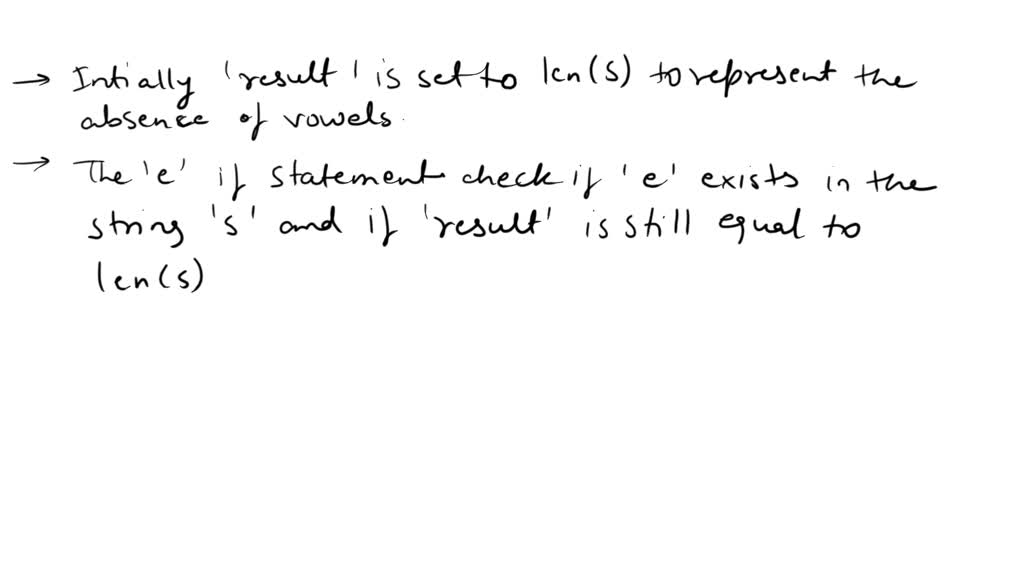 → Intially 'result' is set to len(s) to represent the
absence of vowels.
→ The 'e' if statement check if 'e' exists in the
string 's' and if 'result' is still equal to
len(s)